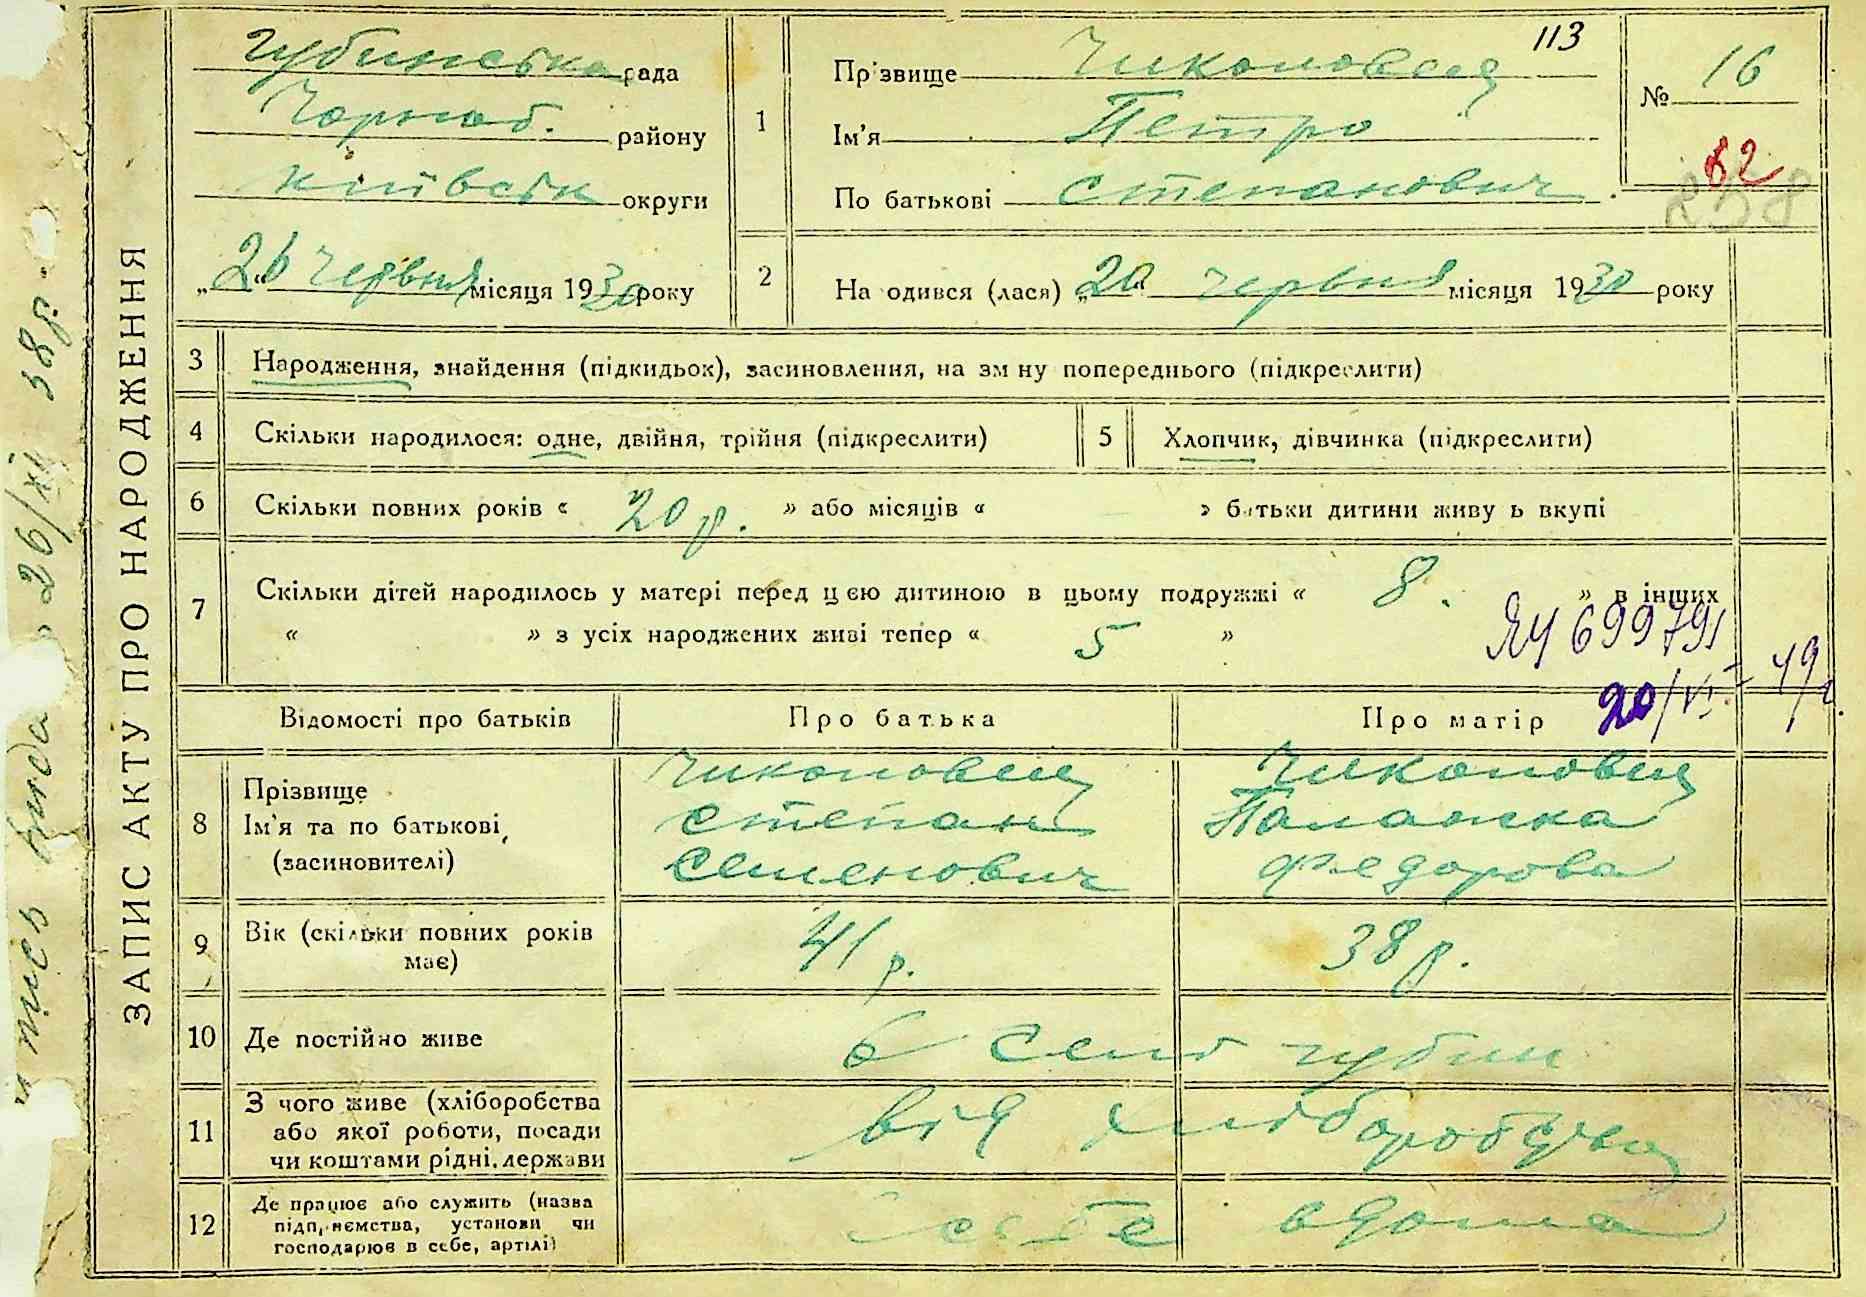 113
Губинська рада
Чорноб. району
київськ округи
„26“ червня місяця 1930 року
1
Прізвище Чиколовец
Ім'я Петро
По батькові Степанович
№ 16
62
238
2
На одився (лася) „20“ червня місяця 1930 року
ЗАПИС АКТУ ПРО НАРОДЖЕННЯ
3 Народження, знайдення (підкидьок), засиновлення, на зм ну попереднього (підкреслити)
4 Скільки народилося: одне, двійня, трійня (підкреслити)
5 Хлопчик, дівчинка (підкреслити)
6 Скільки повних років « 20 р. » або місяців « » батьки дитини живу ь вкупі
7 Скільки дітей народилось у матері перед цією дитиною в цьому подружжі « 8. » в інших
« » з усіх народжених живі тепер « 5 »
ЯЧ 699791
20/VI - 49 г.
Відомості про батьків
Про батька
Про матір
8
Прізвище
Ім'я та по батькові,
(засиновителі)
Чиколовец
Степан
Семенович
Чиколовец
Палажка
Федорова
9
Вік (скільки повних років
має)
41 р.
38 р.
10 Де постійно живе
в селі Губин
11
З чого живе (хліборобства
або якої роботи, посади
чи коштами рідні, держави
від хліборобства
12
Де працює або служить (назва
підпр,иємства, установи чи
господарює в себе, артілі)
себе вдома
26/XI 38 р.